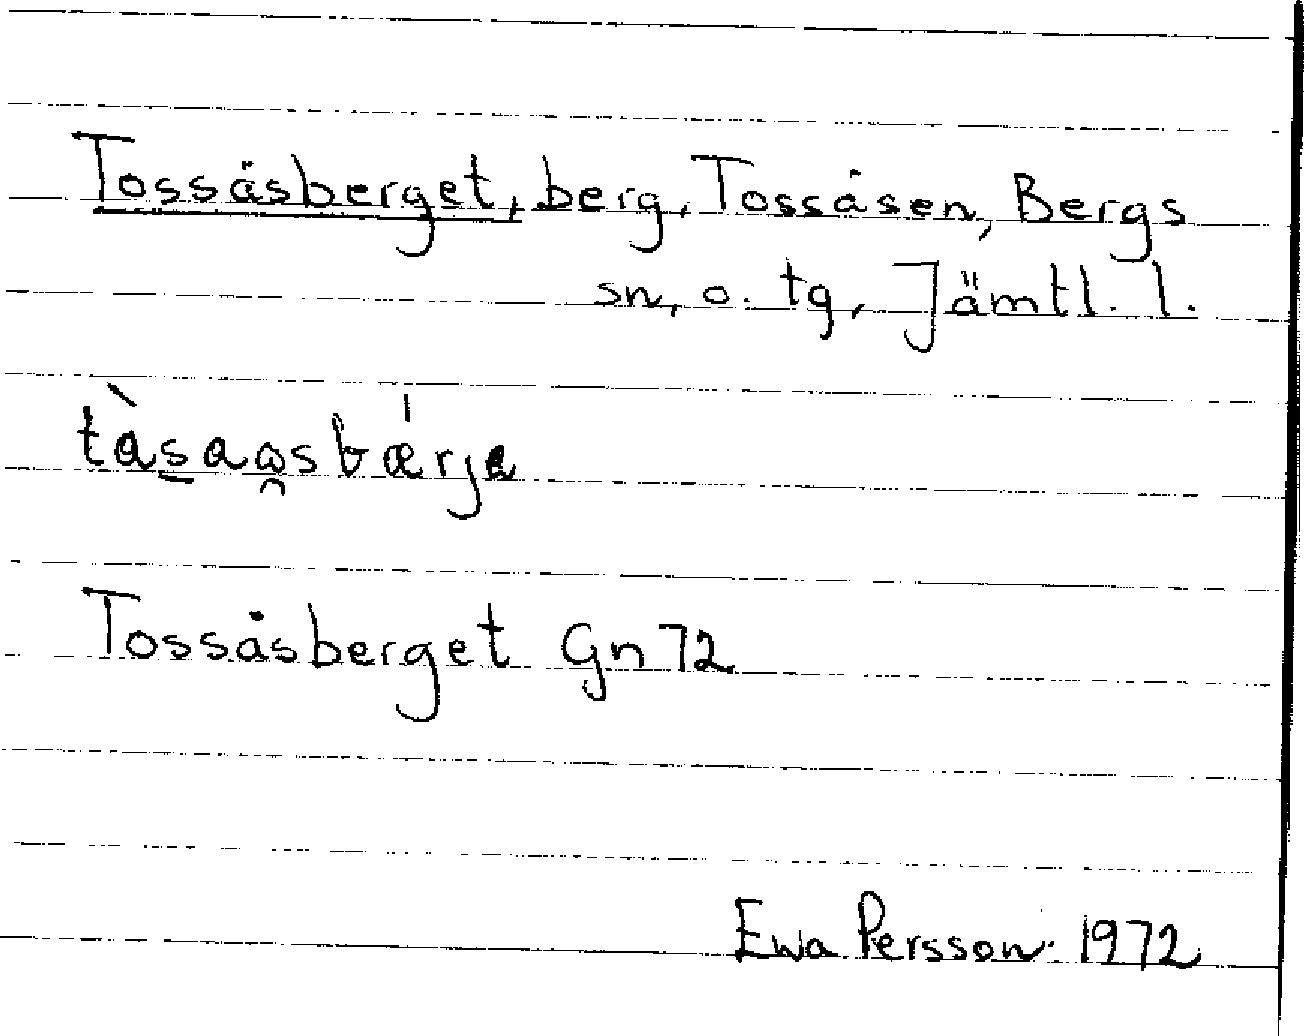 Tossåsberget, berg, Tossåsen, Bergs
sn, o. tg, Jämtl. l.
Tossåsberget Gn 72
Ewa Persson 1972